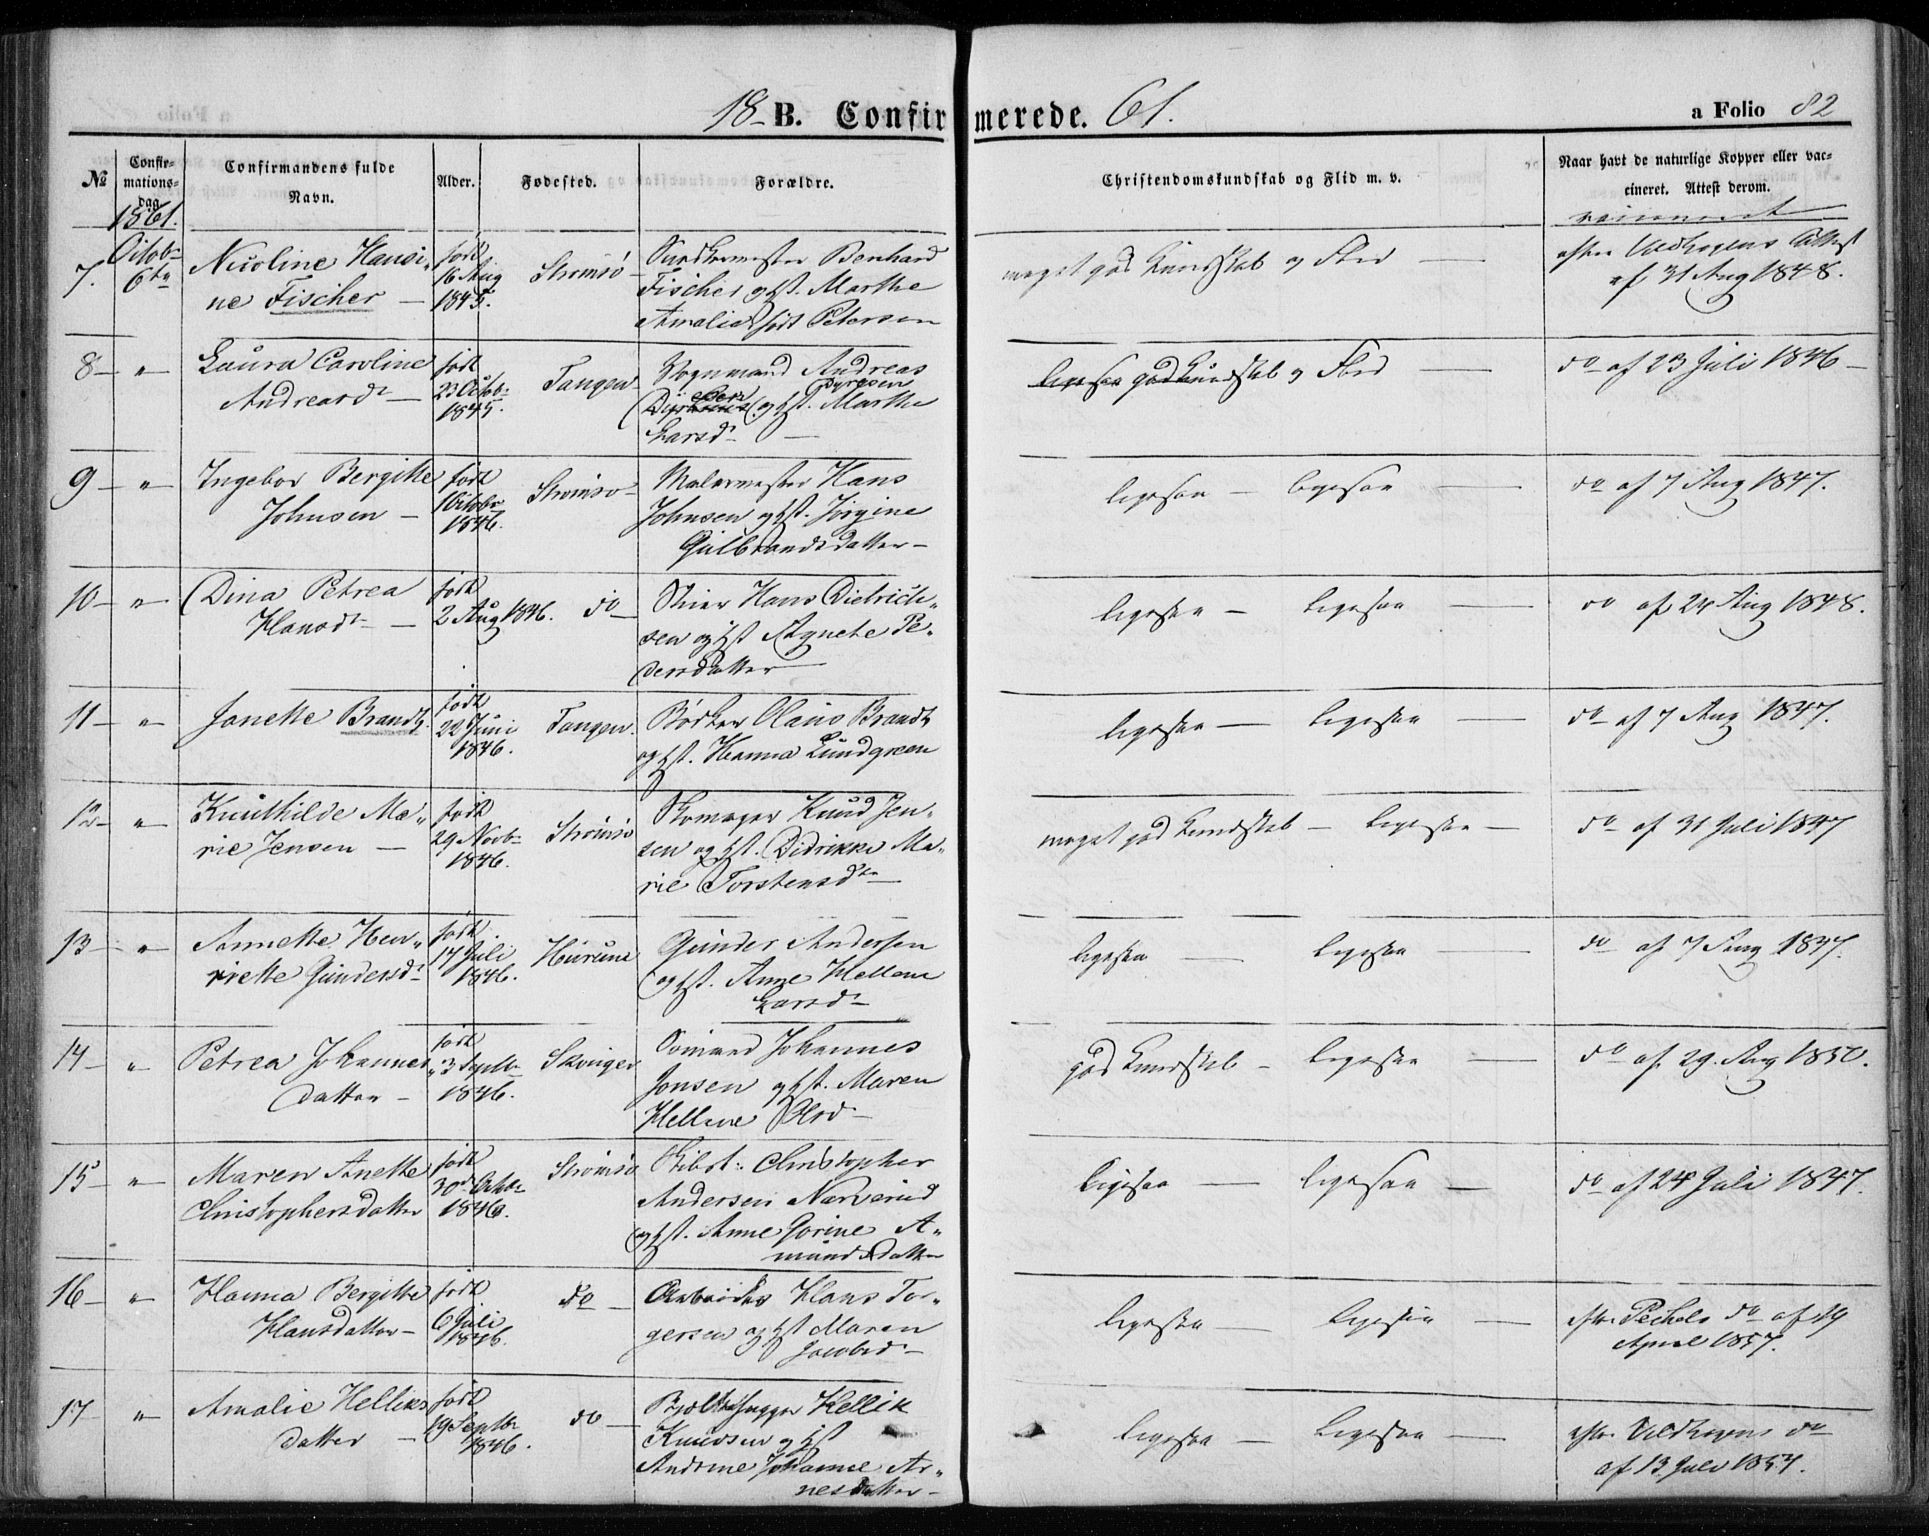 18 B. Confirmerede. 61.
a Folio 82
№
Confirmations-dag.
Confirmandens fulde Navn.
Alder.
Fødested.
Forældre.
Christendomskundskab og Flid m. v.
Naar havt de naturlige Kopper eller vac-
cineret. Attest derom.
1861.
vaccineret
7. Octob 6te
Nicoline Hansi-
ne Fischer
født 16 Aug 1845.
Strømsø
Bernhard
Fischer og Hst. Marthe
Amalie født Petersen
meget god Kundskab og Flid
efter Attest
af 31 Aug 1848.
8 "
Laura Caroline
Andreasdr
født 23 Octob 1845.
Tangen
Vognmand Andreas
Dyresen
og Hst. Marthe
Larsdr
ligesaa god Kundskab og Flid
do af 23 Juli 1846
9 "
Ingebor Bergitte
Johnsen
født 1 Octobr 1846.
Strømsø
Malermester Hans
Johnsen og Hst. Jørgine
Gulbrandsdatter
ligesaa ligesaa
do af 7 Aug 1847.
10 "
Dina Petrea
Hansdr
født 2 Aug 1846.
do
Hans Dietrich-
sen og Hst Agnethe Pe-
dersdatter
ligesaa ligesaa
do af 24 Aug 1848.
11 "
Janette Brandt
født 22 Juni 1846.
Tangen
Bødker Olaus Brandt
og Hst. Hanna Lundgreen
ligesaa ligesaa
do af 7 Aug 1847.
12 "
Knuthilde Ma-
rie Jensen
født 29 Novb 1846.
Strømsø
Skomager Knud Jen-
sen og Hst. Didrikke Ma-
rie Torstensdr
meget god Kundskab ligesaa
do af 31 Juli 1847
13 "
Annette Hen-
riette Gundersdr
født 17 Juli 1846.
Hurum
Gunder Andersen
og Hst. Anne Hellene
Larsdr
ligesaa ligesaa
do af 7 Aug 1847.
14 "
Petrea Johannes-
datter
født 3 Septb 1846.
Skouger
Sømand Johannes
Jonsen og Hst. Maren
Hellene Olsdr
god Kundskab ligesaa
do af 29. Aug 1850.
15 "
Maren Anette
Christophersdatter
født 30 Octbr 1846.
Strømsø
Christopher
Andersen Narverud
og Hst. Anne Gorine A-
mundsdatter
ligesaa ligesaa
do af 24 Juli 1847.
16 "
Hanna Bergitte
Hansdatter
født 6 Juli 1846.
do
Arbeider Hans Tor-
gersen og Hst Maren
Jacobsdr
ligesaa ligesaa
efter Pechels do af 19
April 1857.
17 "
Amalie Helliks
datter
født 19 Septbr 1846.
do
Hellik
Knudsen og Hst
Andrine Johanne Ar-
nesdatter
ligesaa ligesaa
efter do
af 13 Juli 1854.